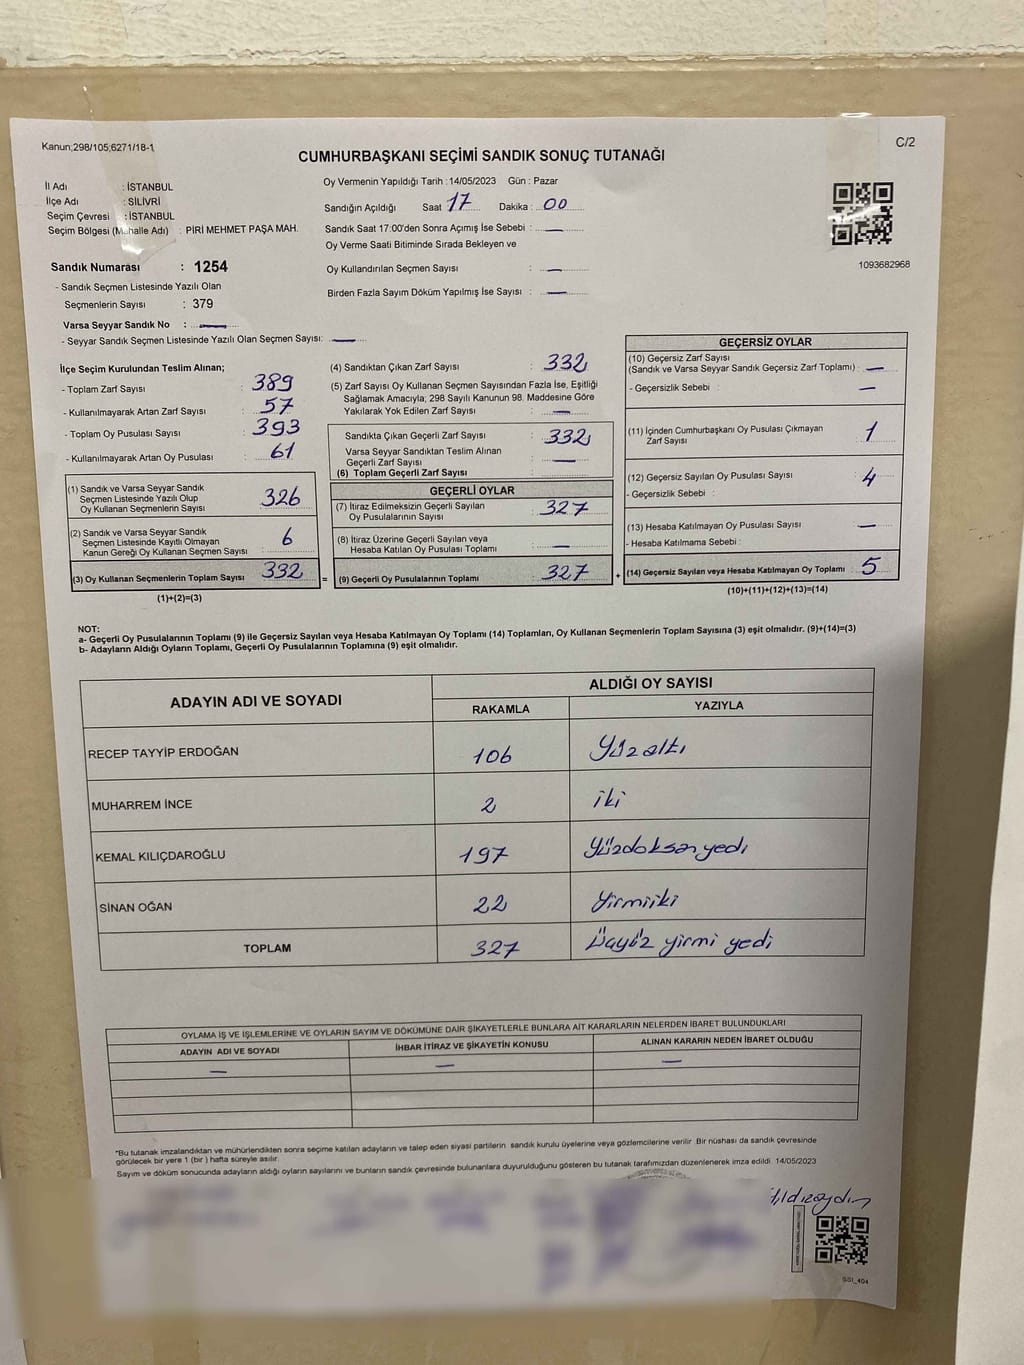 Kanun;298/105;6271/18-1
C/2
CUMHURBAŞKANI SEÇİMİ SANDIK SONUÇ TUTANAĞI
İl Adı : İSTANBUL
İlçe Adı : SİLİVRİ
Seçim Çevresi : İSTANBUL
Seçim Bölgesi (Mahalle Adı) : PİRİ MEHMET PAŞA MAH.
Sandık Numarası : 1254
- Sandık Seçmen Listesinde Yazılı Olan
Seçmenlerin Sayısı : 379
Varsa Seyyar Sandık No : —
- Seyyar Sandık Seçmen Listesinde Yazılı Olan Seçmen Sayısı: —
Oy Vermenin Yapıldığı Tarih : 14/05/2023 Gün : Pazar
Sandığın Açıldığı Saat 17 Dakika : 00
Sandık Saat 17:00'den Sonra Açımış İse Sebebi : —
Oy Verme Saati Bitiminde Sırada Bekleyen ve
Oy Kullandırılan Seçmen Sayısı : —
Birden Fazla Sayım Döküm Yapılmış İse Sayısı : —
1093682968
İlçe Seçim Kurulundan Teslim Alınan;
- Toplam Zarf Sayısı : 389
- Kullanılmayarak Artan Zarf Sayısı : 57
- Toplam Oy Pusulası Sayısı : 393
- Kullanılmayarak Artan Oy Pusulası : 61
(1) Sandık ve Varsa Seyyar Sandık
Seçmen Listesinde Yazılı Olup
Oy Kullanan Seçmenlerin Sayısı 326
(2) Sandık ve Varsa Seyyar Sandık
Seçmen Listesinde Kayıtlı Olmayan
Kanun Gereği Oy Kullanan Seçmen Sayısı 6
(3) Oy Kullanan Seçmenlerin Toplam Sayısı 332 =
(1)+(2)=(3)
(4) Sandıktan Çıkan Zarf Sayısı : 332
(5) Zarf Sayısı Oy Kullanan Seçmen Sayısından Fazla İse, Eşitliği
Sağlamak Amacıyla; 298 Sayılı Kanunun 98. Maddesine Göre
Yakılarak Yok Edilen Zarf Sayısı : —
Sandıkta Çıkan Geçerli Zarf Sayısı : 332
Varsa Seyyar Sandıktan Teslim Alınan
Geçerli Zarf Sayısı : —
(6) Toplam Geçerli Zarf Sayısı :
GEÇERLİ OYLAR
(7) İtiraz Edilmeksizin Geçerli Sayılan
Oy Pusulalarının Sayısı : 327
(8) İtiraz Üzerine Geçerli Sayılan veya
Hesaba Katılan Oy Pusulası Toplamı : —
(9) Geçerli Oy Pusulalarının Toplamı : 327 +
GEÇERSİZ OYLAR
(10) Geçersiz Zarf Sayısı
(Sandık ve Varsa Seyyar Sandık Geçersiz Zarf Toplamı) : —
- Geçersizlik Sebebi : —
(11) İçinden Cumhurbaşkanı Oy Pusulası Çıkmayan
Zarf Sayısı 1
(12) Geçersiz Sayılan Oy Pusulası Sayısı 4
- Geçersizlik Sebebi :
(13) Hesaba Katılmayan Oy Pusulası Sayısı —
- Hesaba Katılmama Sebebi :
(14) Geçersiz Sayılan veya Hesaba Katılmayan Oy Toplamı : 5
(10)+(11)+(12)+(13)=(14)
NOT:
a- Geçerli Oy Pusulalarının Toplamı (9) ile Geçersiz Sayılan veya Hesaba Katılmayan Oy Toplamı (14) Toplamları, Oy Kullanan Seçmenlerin Toplam Sayısına (3) eşit olmalıdır. (9)+(14)=(3)
b- Adayların Aldığı Oyların Toplamı, Geçerli Oy Pusulalarının Toplamına (9) eşit olmalıdır.
ADAYIN ADI VE SOYADI ALDIĞI OY SAYISI
RAKAMLA YAZIYLA
RECEP TAYYİP ERDOĞAN 106 Yüzaltı
MUHARREM İNCE 2 iki
KEMAL KILIÇDAROĞLU 197 Yüzdoksanyedi
SİNAN OĞAN 22 Yirmiiki
TOPLAM 327 Üçyüz yirmi yedi
OYLAMA İŞ VE İŞLEMLERİNE VE OYLARIN SAYIM VE DÖKÜMÜNE DAİR ŞİKAYETLERLE BUNLARA AİT KARARLARIN NELERDEN İBARET BULUNDUKLARI
ADAYIN ADI VE SOYADI İHBAR İTİRAZ VE ŞİKAYETİN KONUSU ALINAN KARARIN NEDEN İBARET OLDUĞU
— — —
"Bu tutanak imzalandıktan ve mühürlendikten sonra seçime katılan adayların ve talep eden siyasi partilerin sandık kurulu üyelerine veya gözlemcilerine verilir. Bir nüshası da sandık çevresinde
görülecek bir yere 1 (bir ) hafta süreyle asılır.
Sayım ve döküm sonucunda adayların aldığı oyların sayılarını ve bunların sandık çevresinde bulunanlara duyurulduğunu gösteren bu tutanak tarafımızdan düzenlenerek imza edildi. 14/05/2023
SSI_404